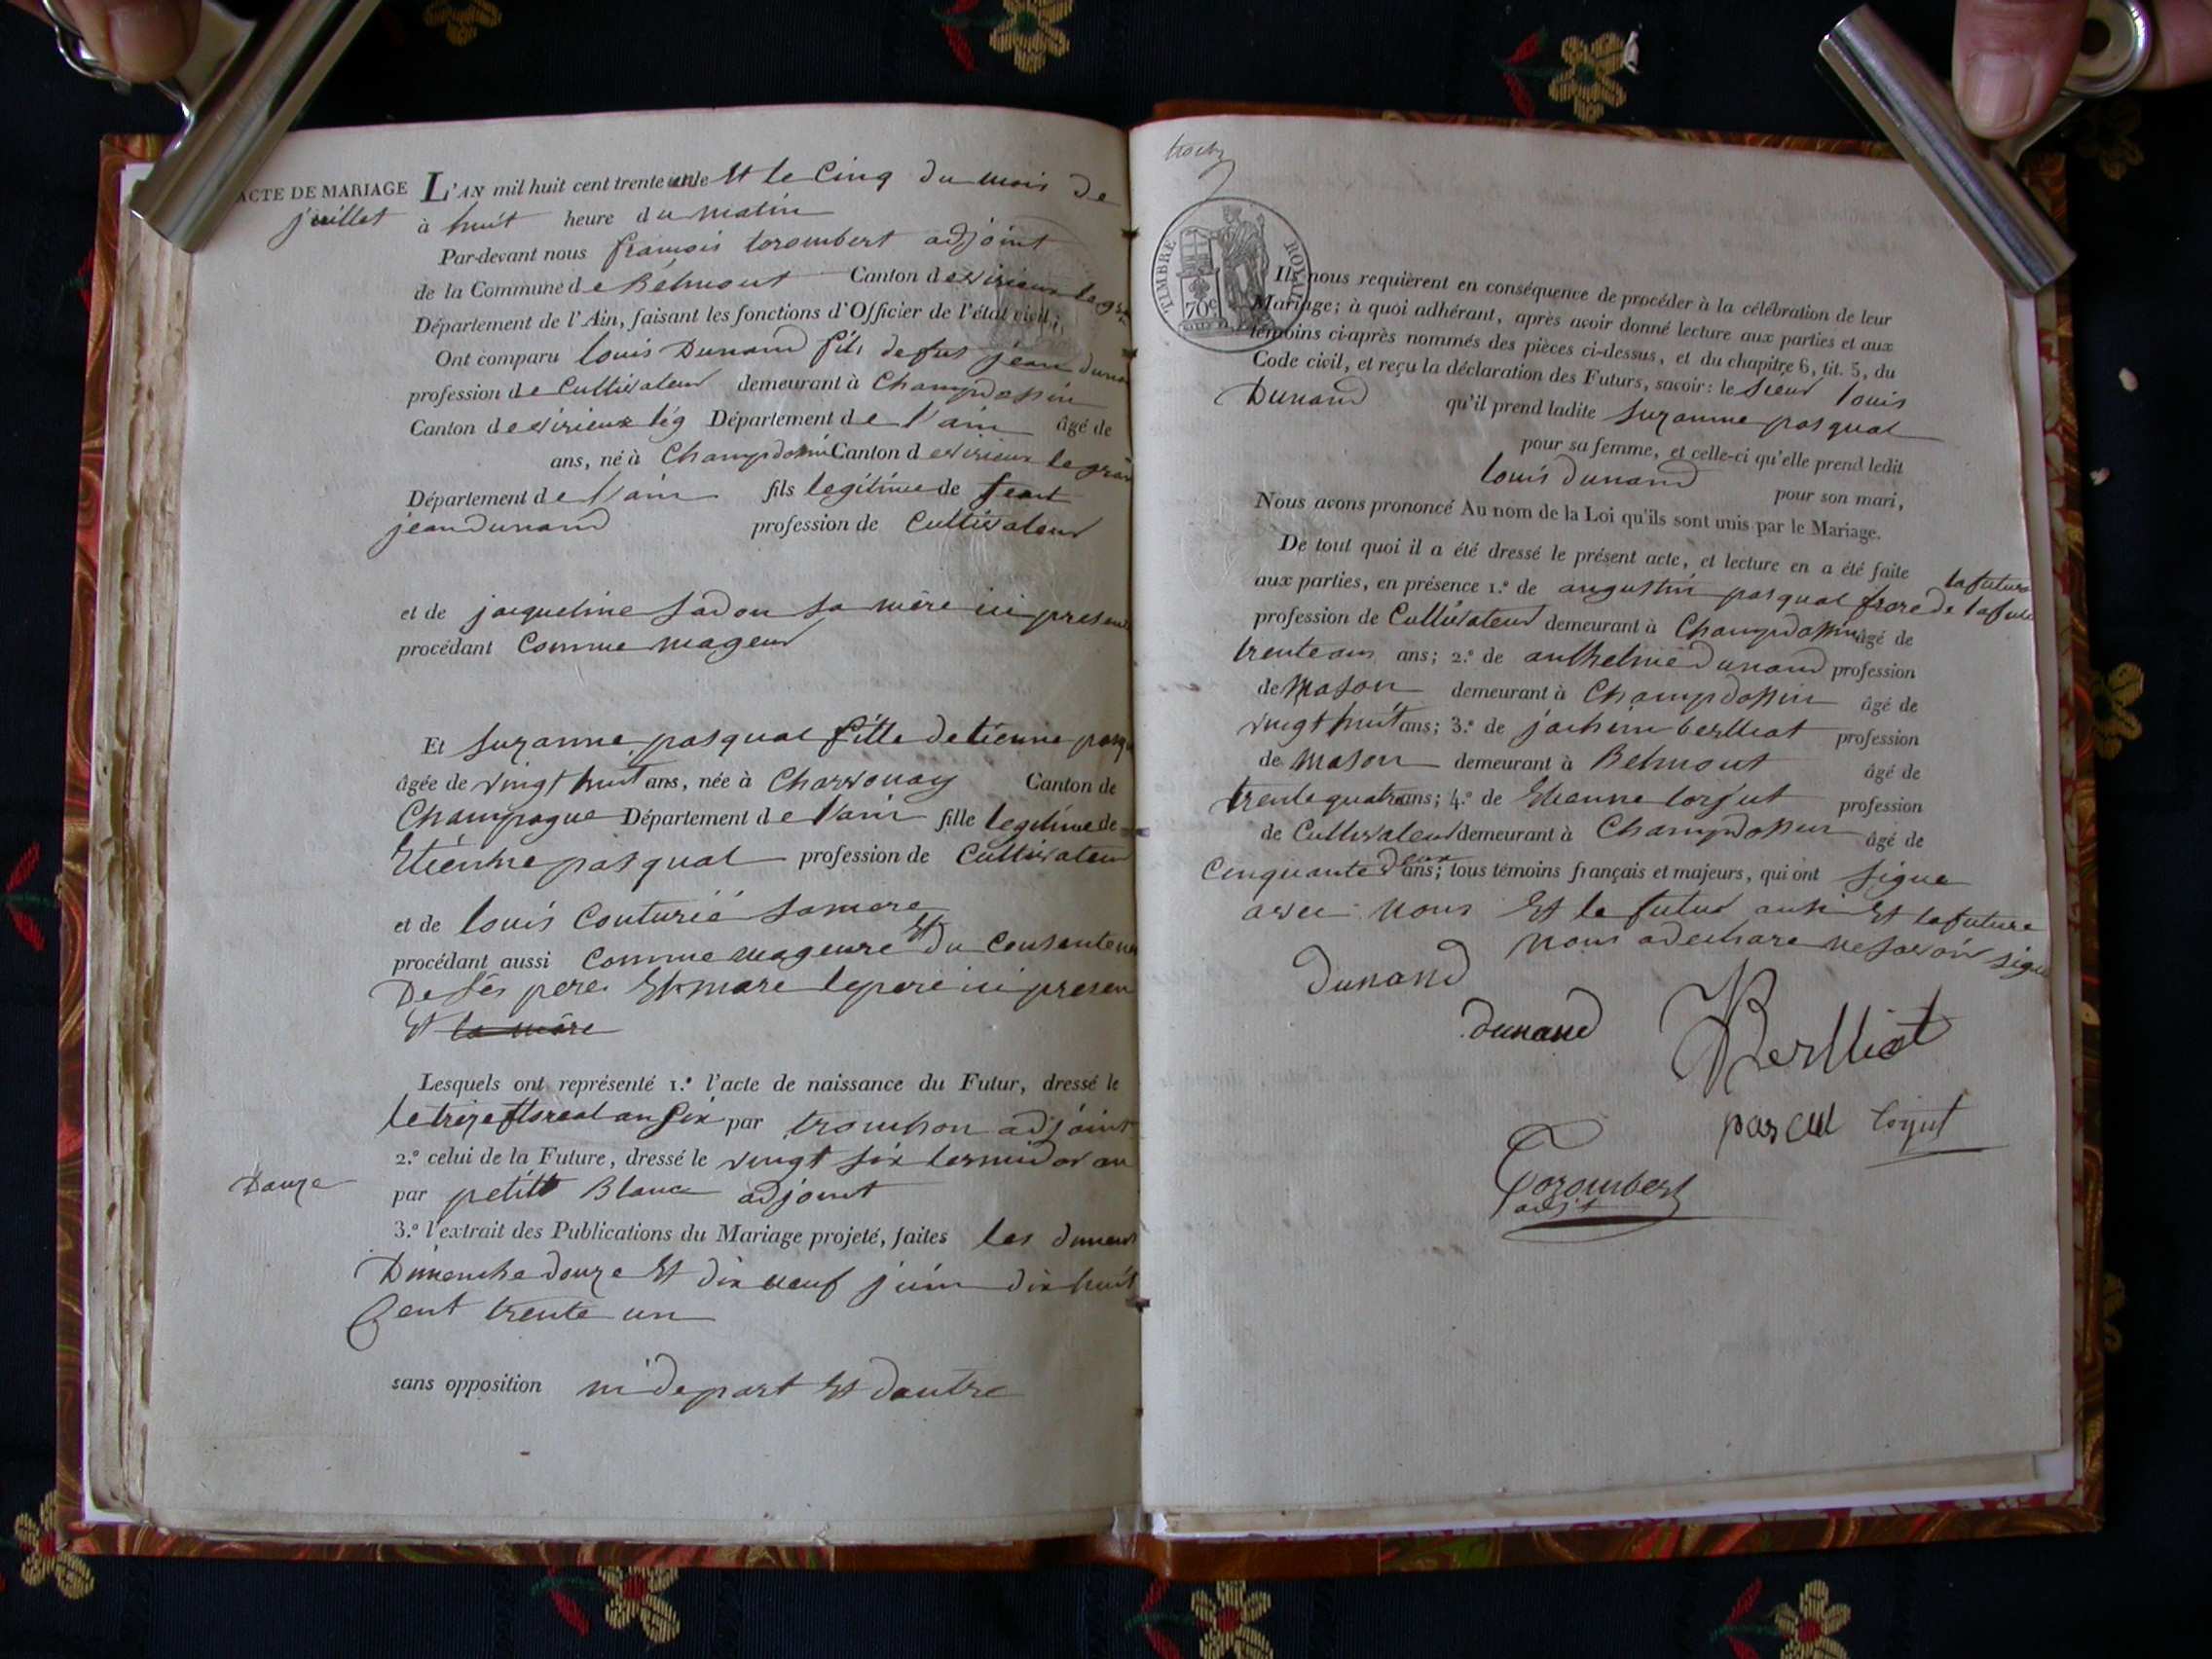 ACTE DE MARIAGE L'AN mil huit cent trente et le Cinq du mois de
juillet à huit heure du matin
Par-devant nous francois torombert adjoint
de la Commune de Bélmont Canton de virieux le gr
Département de l'Ain, faisant les fonctions d'Officier de l'état civil;
Ont comparu louis Dunand fils de jean duna
profession de Cultivateur demeurant à Champdossin
Canton de virieux le g Département de l'ain âgé de
ans, né à Champdossin Canton de virieux le gran
Département de l'ain fils legitime de
jean dunand profession de Cultivateur
et de jacqueline sadou sa mère ici presente
procédant Comme mageur
Et suzanne pasqual fille detienne pasqu
âgée de vingt huit ans, née à Charvonay Canton de
Champagne Département de l'ain fille legitime de
Etienne pasqual profession de Cultivateur
et de louis Couturié samere
procédant aussi Comme mageure et du Consenteme
De ses pere Et mare le pere ici presen
et la mère
Lesquels ont représenté 1.° l'acte de naissance du Futur, dressé le
le treize floreal an six par trouchon adjoint
2.° celui de la Future, dressé le vingt six termidor an
Douze par petitt Blanc adjoint
3.° l'extrait des Publications du Mariage projeté, faites les
Dimenche douze Et dix neuf juin dix huit
Cent trente un
sans opposition ni de part Et dautre
TIMBRE ROYAL
70c
Ils nous requièrent en conséquence de procéder à la célébration de leur
Mariage; à quoi adhérant, après avoir donné lecture aux parties et aux
témoins ci-après nommés des pièces ci-dessus, et du chapitre 6, tit. 5, du
Code civil, et reçu la déclaration des Futurs, savoir: le sieur louis
Dunand qu'il prend ladite suzanne pasqual
pour sa femme, et celle-ci qu'elle prend ledit
louis dunand pour son mari,
Nous avons prononcé Au nom de la Loi qu'ils sont unis par le Mariage.
De tout quoi il a été dressé le présent acte, et lecture en a été faite
aux parties, en présence 1.° de augustin pasqual frere de la future
profession de Cultivateur demeurant à Champdossin âgé de
trente ans; 2.° de anthelme Dunand profession
de mason demeurant à Champdossin âgé de
vingt huit ans; 3.° de joachim berlliat profession
de mason demeurant à Belmont âgé de
trente quatre ans; 4.° de Etienne lorjut profession
de Cultivateur demeurant à Champdossin âgé de
Cinquante deux ans; tous témoins français et majeurs, qui ont signe
avec nous Et le futur ausi Et la future
nous a declare ne savoir signe
Dunand
dunand
Berlliat
pascal lorjut
Torombert
adjt